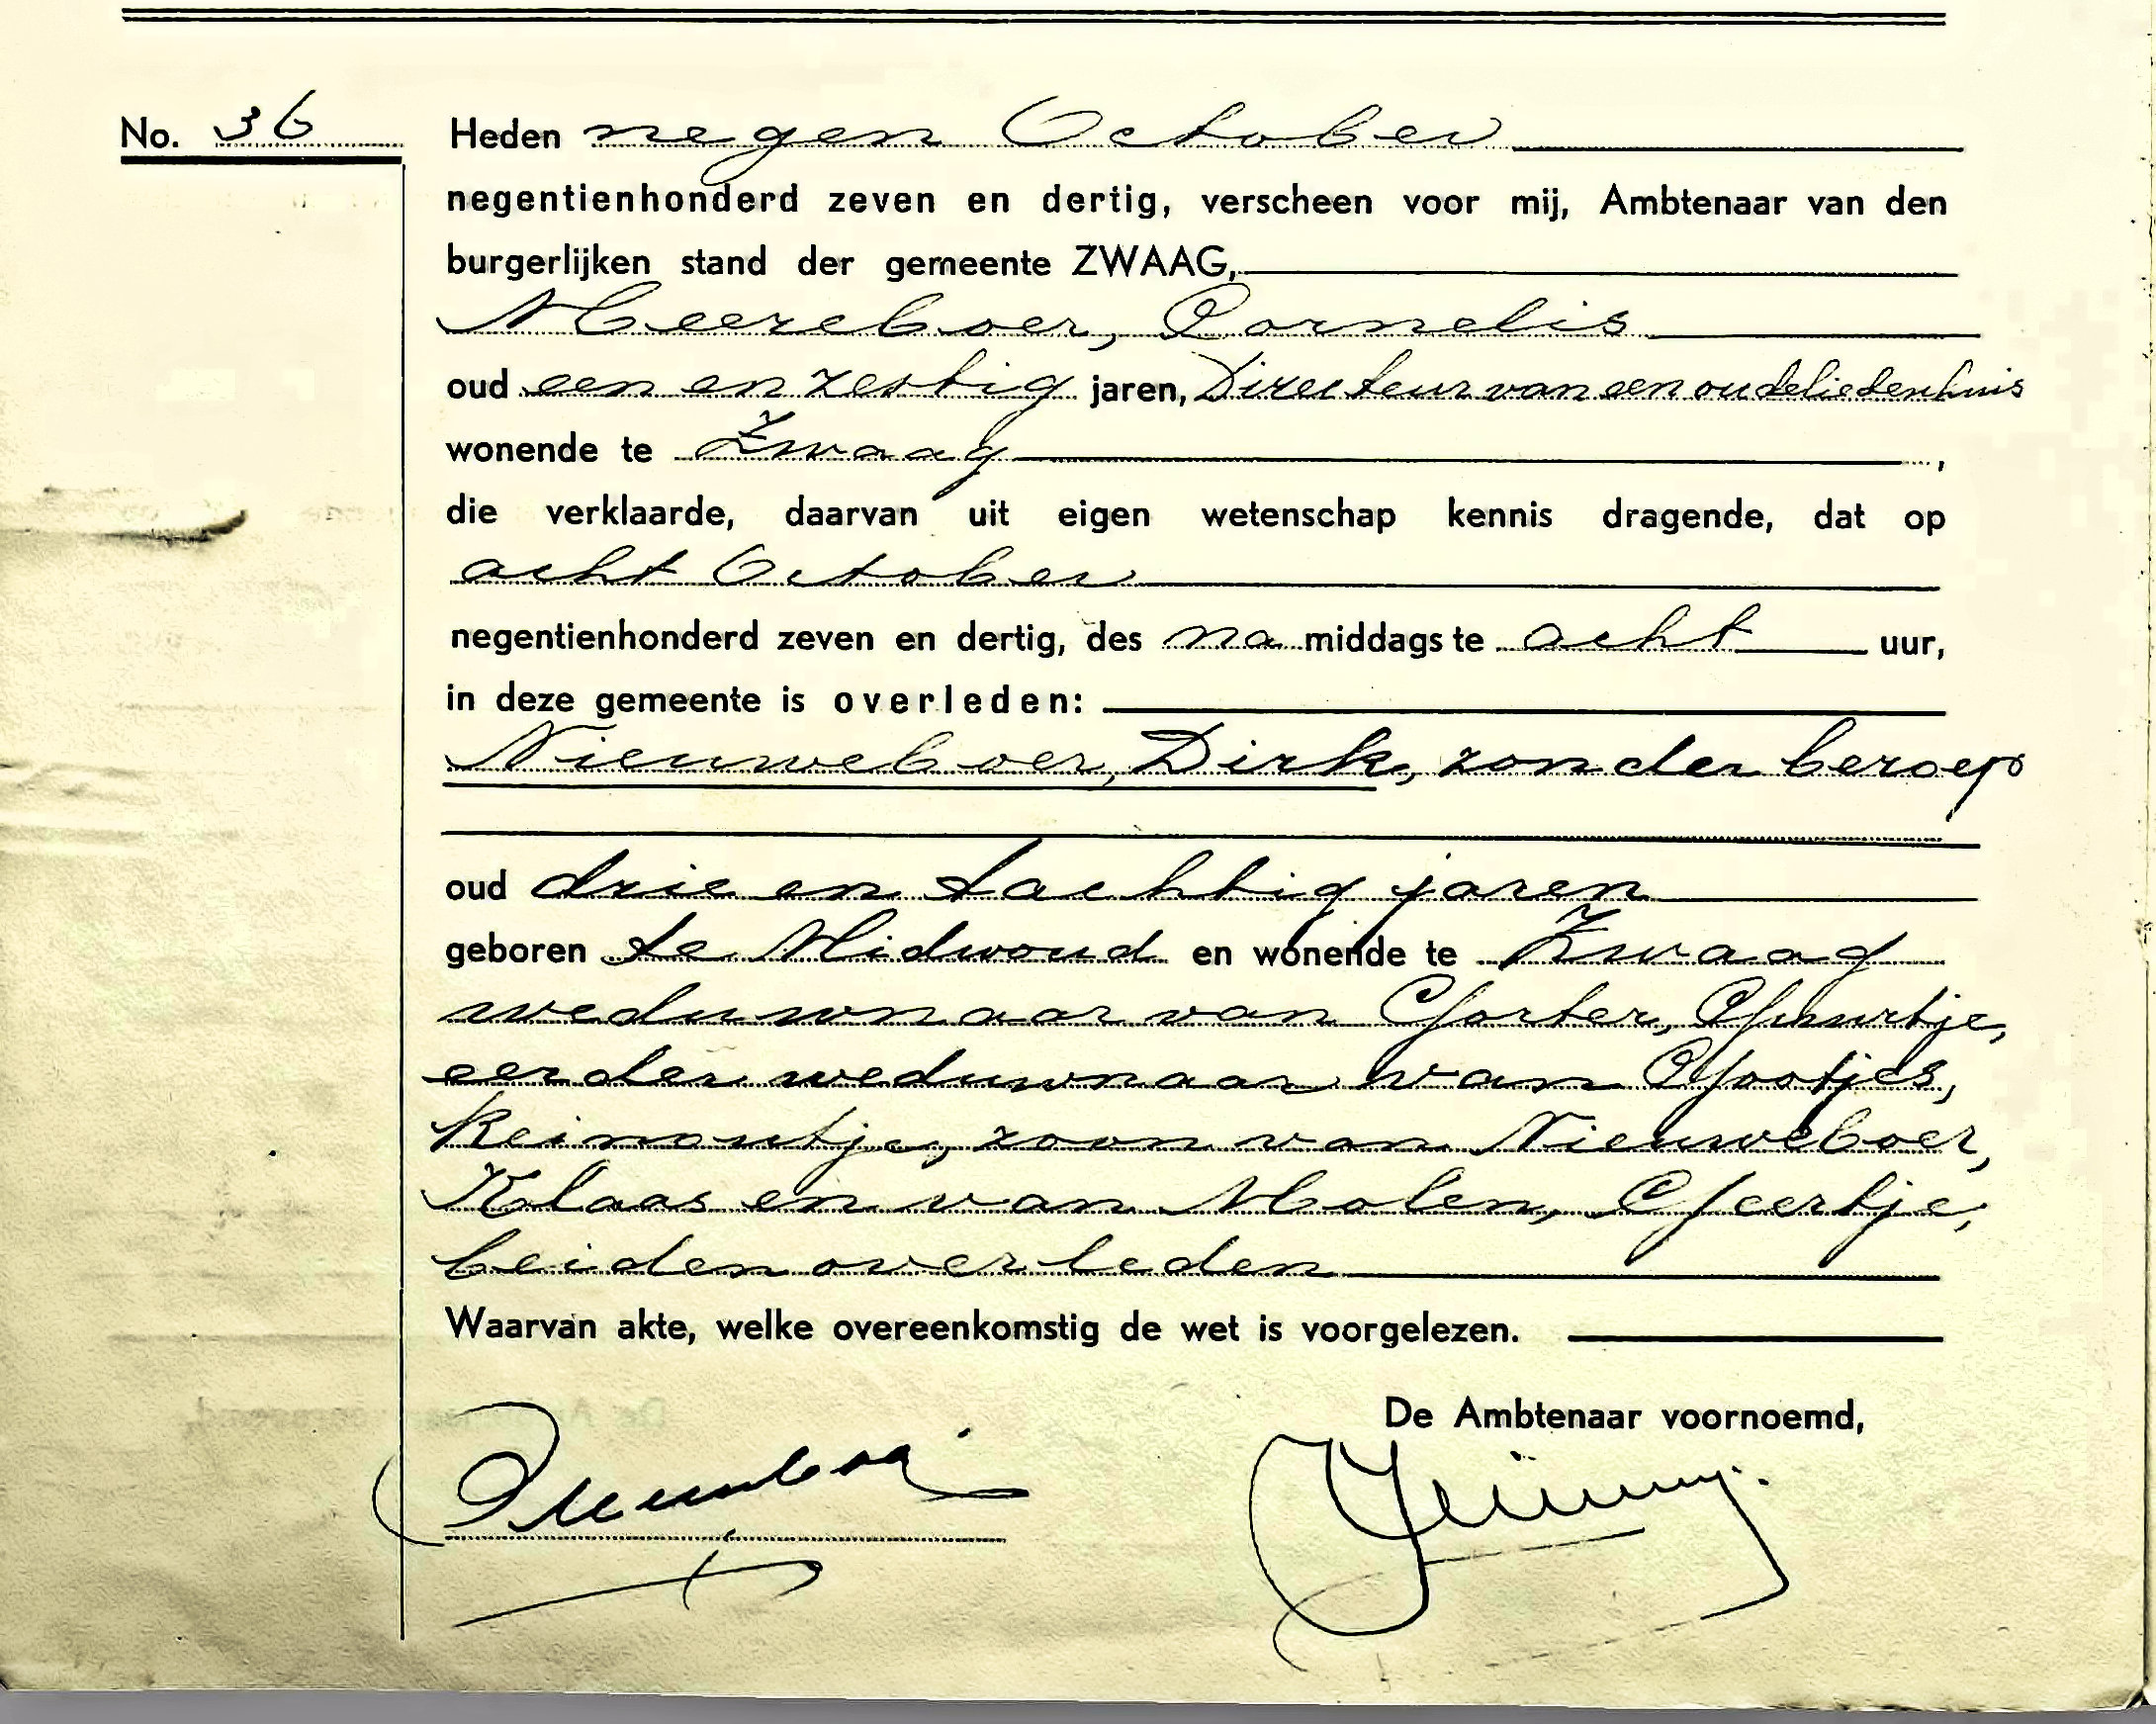 No. 36
Heden negen October
negentienhonderd zeven en dertig, verscheen voor mij, Ambtenaar van den
burgerlijken stand der gemeente ZWAAG,
Meereboer, Cornelis
oud een en zestig jaren, Directeur van een oudeliedenhuis
wonende te Zwaag ,
die verklaarde, daarvan uit eigen wetenschap kennis dragende, dat op
acht October
negentienhonderd zeven en dertig, des na middags te acht uur,
in deze gemeente is overleden:
Nieuweboer, Dirk, zonder beroep
oud drie en tachtig jaren
geboren te Midwoud en wonende te Zwaag
weduwnaar van Gorter, Guurtje,
eerder weduwnaar van Gootjes,
Reinoutje, zoon van Nieuweboer,
Klaas en van Molen, Geertje,
beiden overleden
Waarvan akte, welke overeenkomstig de wet is voorgelezen.
De Ambtenaar voornoemd,